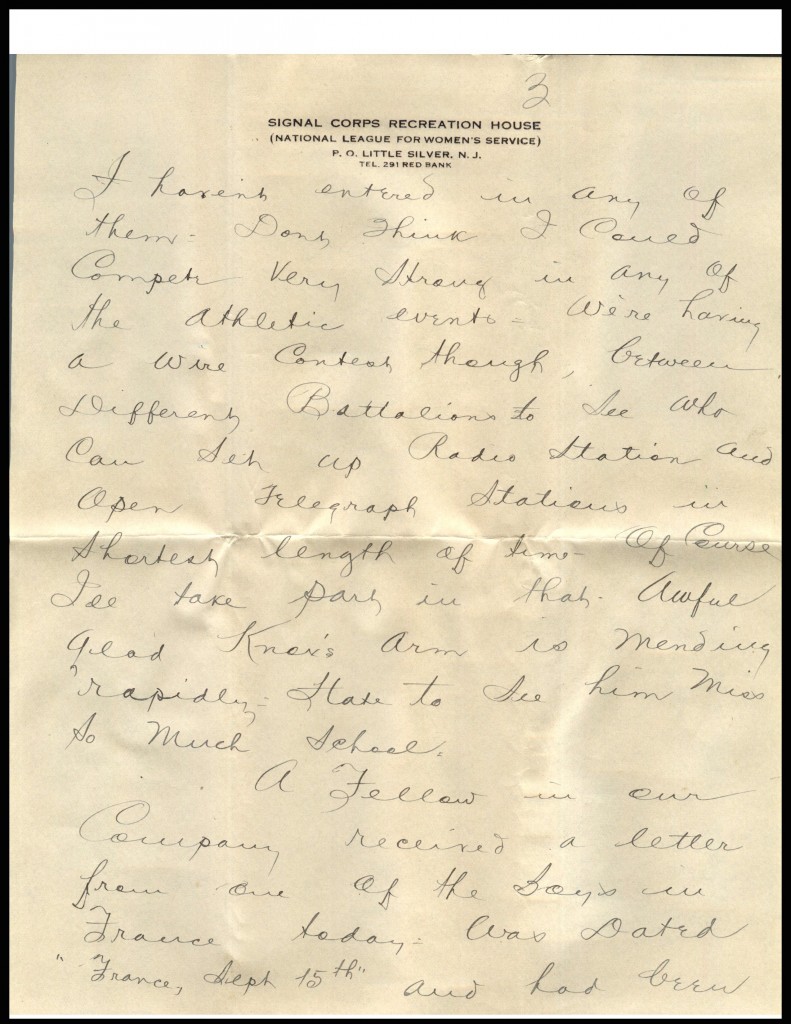 3
SIGNAL CORPS RECREATION HOUSE
(NATIONAL LEAGUE FOR WOMEN'S SERVICE)
P. O. LITTLE SILVER, N. J.
TEL. 291 RED BANK
I havent entered in any of
them - Dont Think I Could
Compete Very Strong in any of
the athletic events - We're having
a wire Contest though, between
Different Battalions to See who
Can Set up Radio Station and
Open Telegraph Stations in
Shortest length of time - Of Course
I'll take part in that - Awful
glad Knox's arm is mending
rapidly - Hate to See him Miss
So Much School.
A Fellow in our
Company received a letter
from one of the Boys in
France today - Was Dated
"France, Sept 15th" and had been